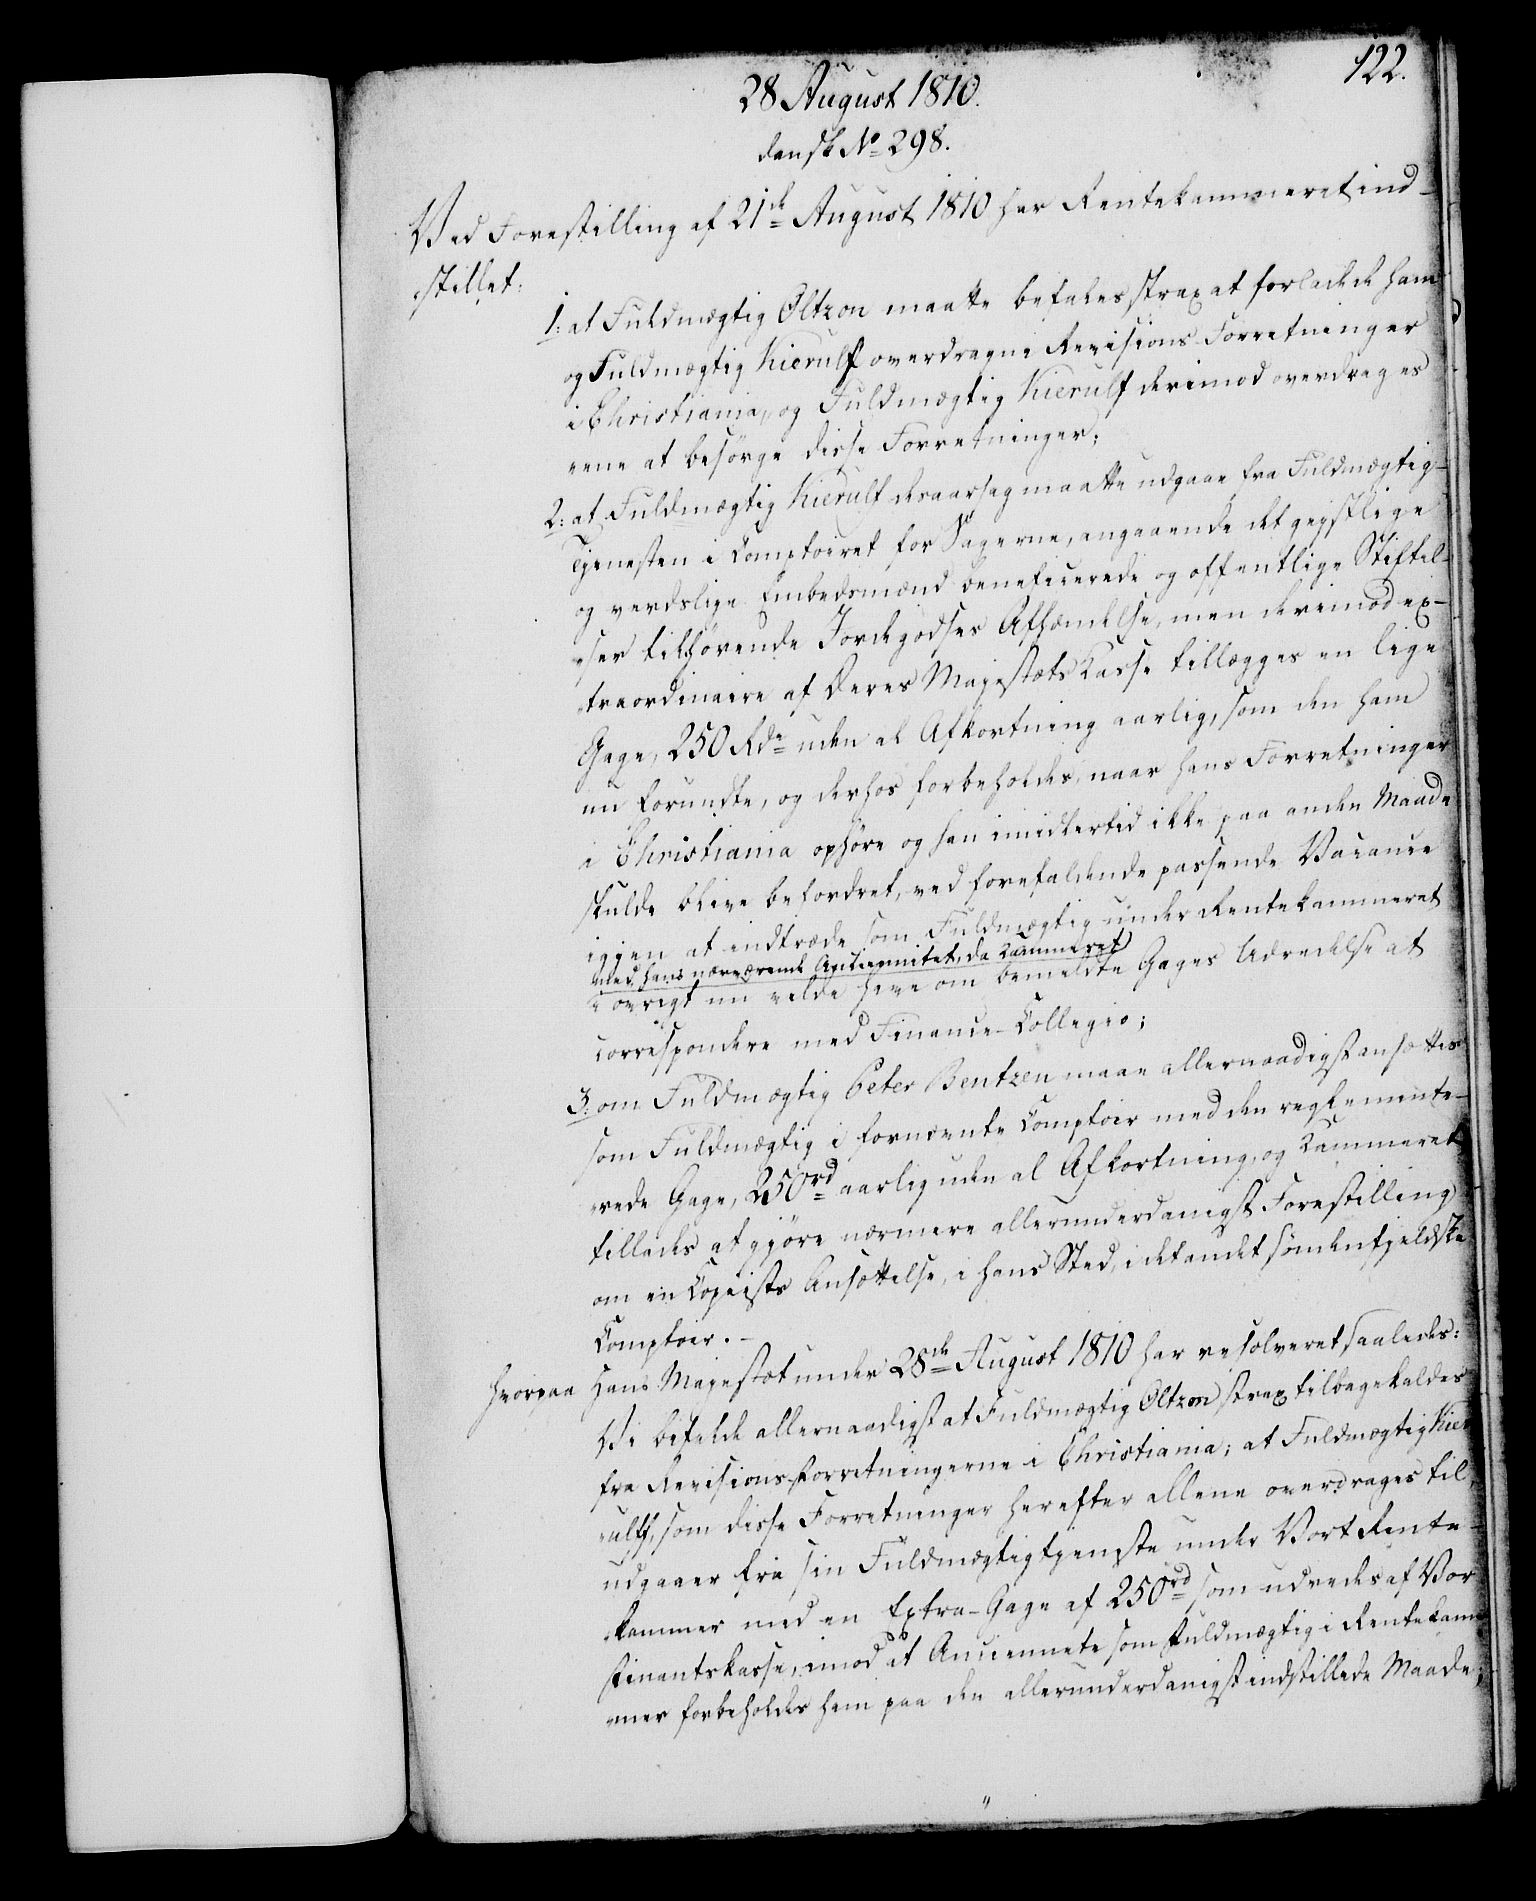 122.
28 August 1810.
dansk No 298.
Ved Forestilling af 21de August 1810 har Rentekammeret ind-
stillet:
1: at Fuldmægtig Oltzon maatte befales strax at forlade de ham
og Fuldmægtig Kierulf overdragne Revisions-Forretninger
i Christiania, og Fuldmægtig Kierulf derimod overdrages
ene at besørge disse Forretninger;
2: at Fuldmægtig Kierulf desaarsag maatte udgaae fra Fuldmægtig-
Tjenesten i Comptoiret for Sagerne, angaaende det geistlige
og verdslige Embedsmænd beneficerede og offentlige Stiftel-
ser tilhørende Jordegodses Afhændelse, men derimod ex-
traordinaire af Deres Majestæts Kasse tillægges en lige
Gage, 250 Rdr uden al Afkortning aarlig, som den ham
nu forundte, og derhos forbeholdes, naar hans Forretninger
i Christiania ophøre og han imidlertid ikke paa anden Maade
skulde blive befordret, ved forefaldende passende Vacance
igjen at indtræde som Fuldmægtig under Rentekammeret
med hans nærværende Anciennitet, da Kammeret
i øvrigt nu vilde have om bemeldte Gages Udredelse at
correspondere med Finance-Collegio;
3: om Fuldmægtig Peter Bentzen maae allernaadigst ansættes
som Fuldmægtig i fornævnte Comptoir med den reglemente-
rede Gage, 250rd aarlig uden al Afkortning, og Kammeret
tillades at gjøre nærmere allerunderdanigst Forestilling
om en Copiists Ansættelse, i hans Sted, i det andet søndenfjeldske
Comptoir. -
Hvorpaa Hans Majestæt under 28de August 1810 har resolveret saaledes:
Vi befale allernaadigst at Fuldmægtig Oltzon strax tilbagekaldes
fra Revisionsforretningerne i Christiania; at Fuldmægtig Kier
ulff, som disse Forretninger herefter allene overdrages til,
udgaaer fra sin Fuldmægtigtjeneste under Vort Rente-
kammer med en Extra-Gage af 250rd som udredes af Vor
Finantskasse, imod at Anciennete som Fuldmægtig i Rentekam
mer forbeholdes ham paa den allerunderdanigst indstillede Maade;